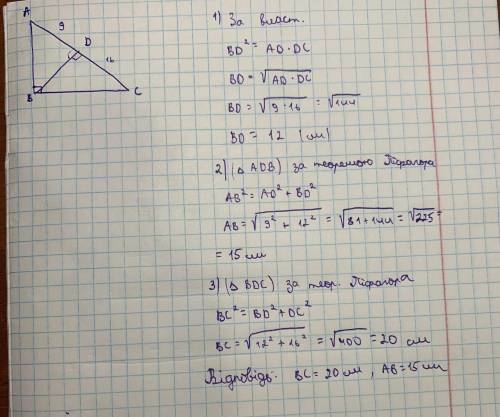 A
9
D
16
B
C
1) За власт.
BD² = AD · DC
BD = √AD · DC
BD = √9 · 16 = √144
BD = 12 (см)
2) (△ ADB) за теоремою Піфагора
AB² = AD² + BD²
AB = √9² + 12² = √81 + 144 = √225 =
= 15 см
3) (△ BDC) за теор. Піфагора
BC² = BD² + DC²
BC = √12² + 16² = √400 = 20 см
Відповідь: BC = 20 см, AB = 15 см